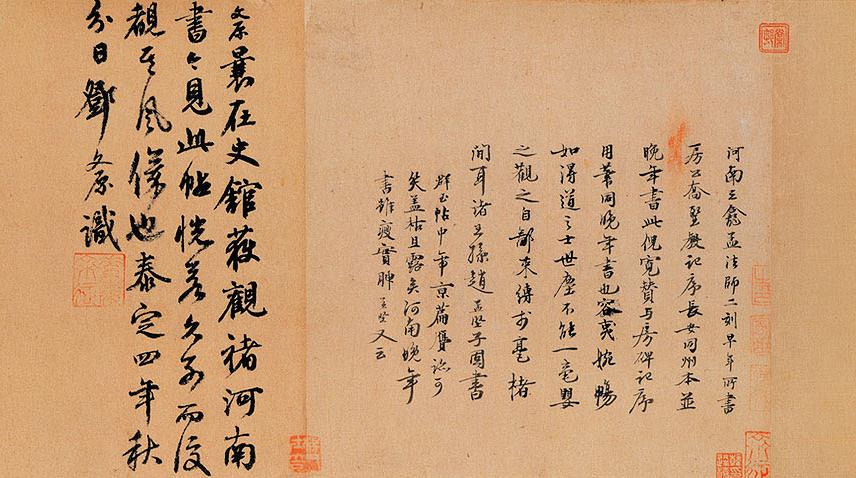 河南三龕孟法師二刻早年所書
房公喬聖教記序長安同州本並
晚年書此倪寬贊与房碑記序
用筆同晚年書也容夷婉暢
如得道之士世塵不能一毫嬰
之觀之自鄙束縛於毫楮
間耳諸王孫趙孟堅子固書
群玉帖中帝京篇贗跡可
笑盖枯且露矣河南晚年
書雖瘦實腴孟堅又云
文原曩在史館获觀褚河南
書今見此帖恍若久別而復
覩其風儀也泰定四年秋
分日鄧文原識